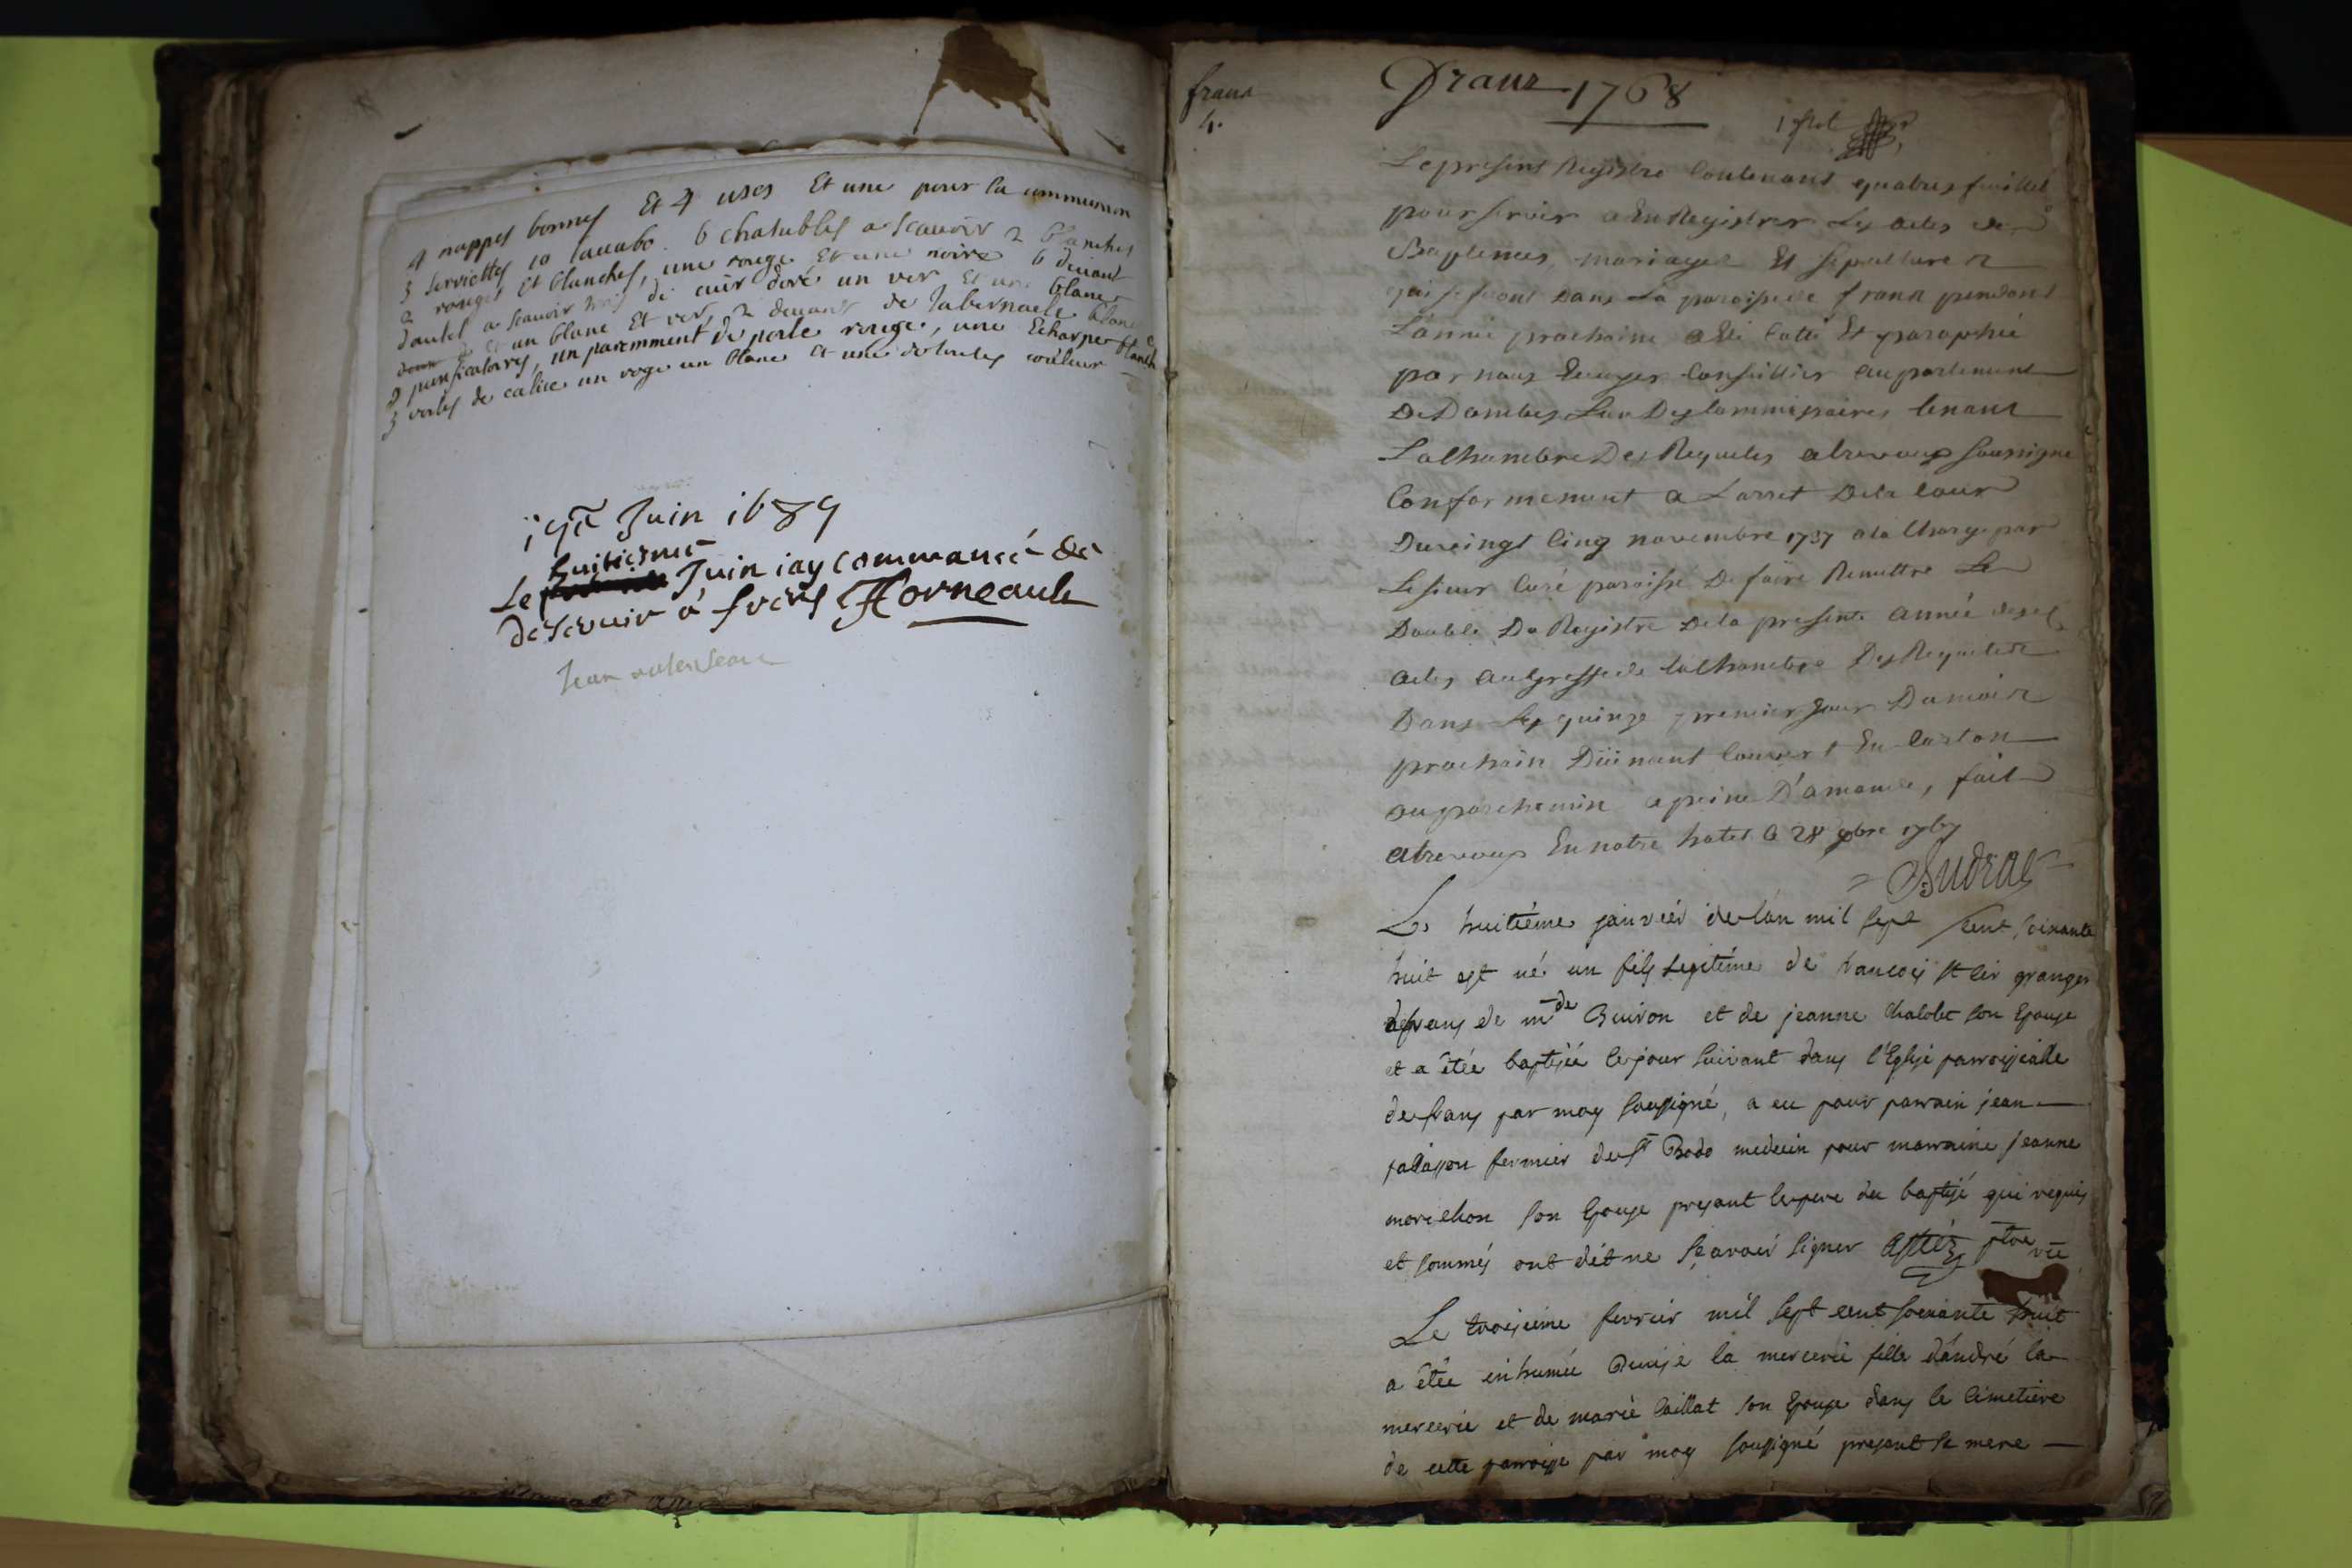 4 nappes bonnes Et 4 uses Et une pour la communion
3 serviettes 10 lauabo. 6 chasubles a scauoir 2 blanches
2 rouges Et blanches, une rouge Et une noire 6 deuant
dautel a scauoir trois de cuir doré un ver Et un blanc
Et un blanc Et ver, 2 deuant de tabernacle blanc
9 purificatoires, un paremment de perle rouge, une Echarpe blanche
3 voiles de calice un roge un blanc et une de toutes couleur
Juin 1689
huitiesme
Le Juin iay commancé de
deseruir a frens Horneault
Jean
frans
4.
Frans 1768
Le present Registre Contenant quatres feuillet
pour servir a EnRegistrer Les actes de
Baptemes, mariages Et sepultures
qui se feront Dans La paroisse de frans pendant
L'année prochaine a Eté Cotté Et paraphé
par nous Ecuyer Conseillier au parlement
De Dombes L'un Des Commissaires tenant
La Chambre Des Requetes a trevoux soussigné
Conformement a L'arret De la Cour
Du vingt Cinq novembre 1737 a la Charge par
Le sieur Curé paroisse De faire Remettre Le
Double Du Registre De la presente année desd
actes au greffe de la Chambre Des Requetes
Dans Les quinze premier jour Du mois
prochain Düement Couvert En Carton
ou parchemin a peine D'amande, fait
a trevoux En notre hotel le 28 9bre 1767
Le huitiéme janviér de lan mil sept cent soixante
huit est né un fils legitime de francois st cir granger
defrans de mde Buiron et de jeanne Chalobet son Epouse
et a êtée baptisée le jour suivant dans l'Eglise parroissialle
de frans par moy soussigné, a eu pour parrain jean
fermier du sr Bodo medecin pour marraine jeanne
morellon son Epouse presant le pere du baptisé qui requis
et sommés ont dit ne sçavoir signer ptre vic
Le troisieme fevrier mil sept cent soixante huit
a êtée inhumée Denise la mercerie fille d'andré la
mercerie et de marie Caillat son Epouse dans le cimetiere
de cette parroisse par moy soussigné presant le mere